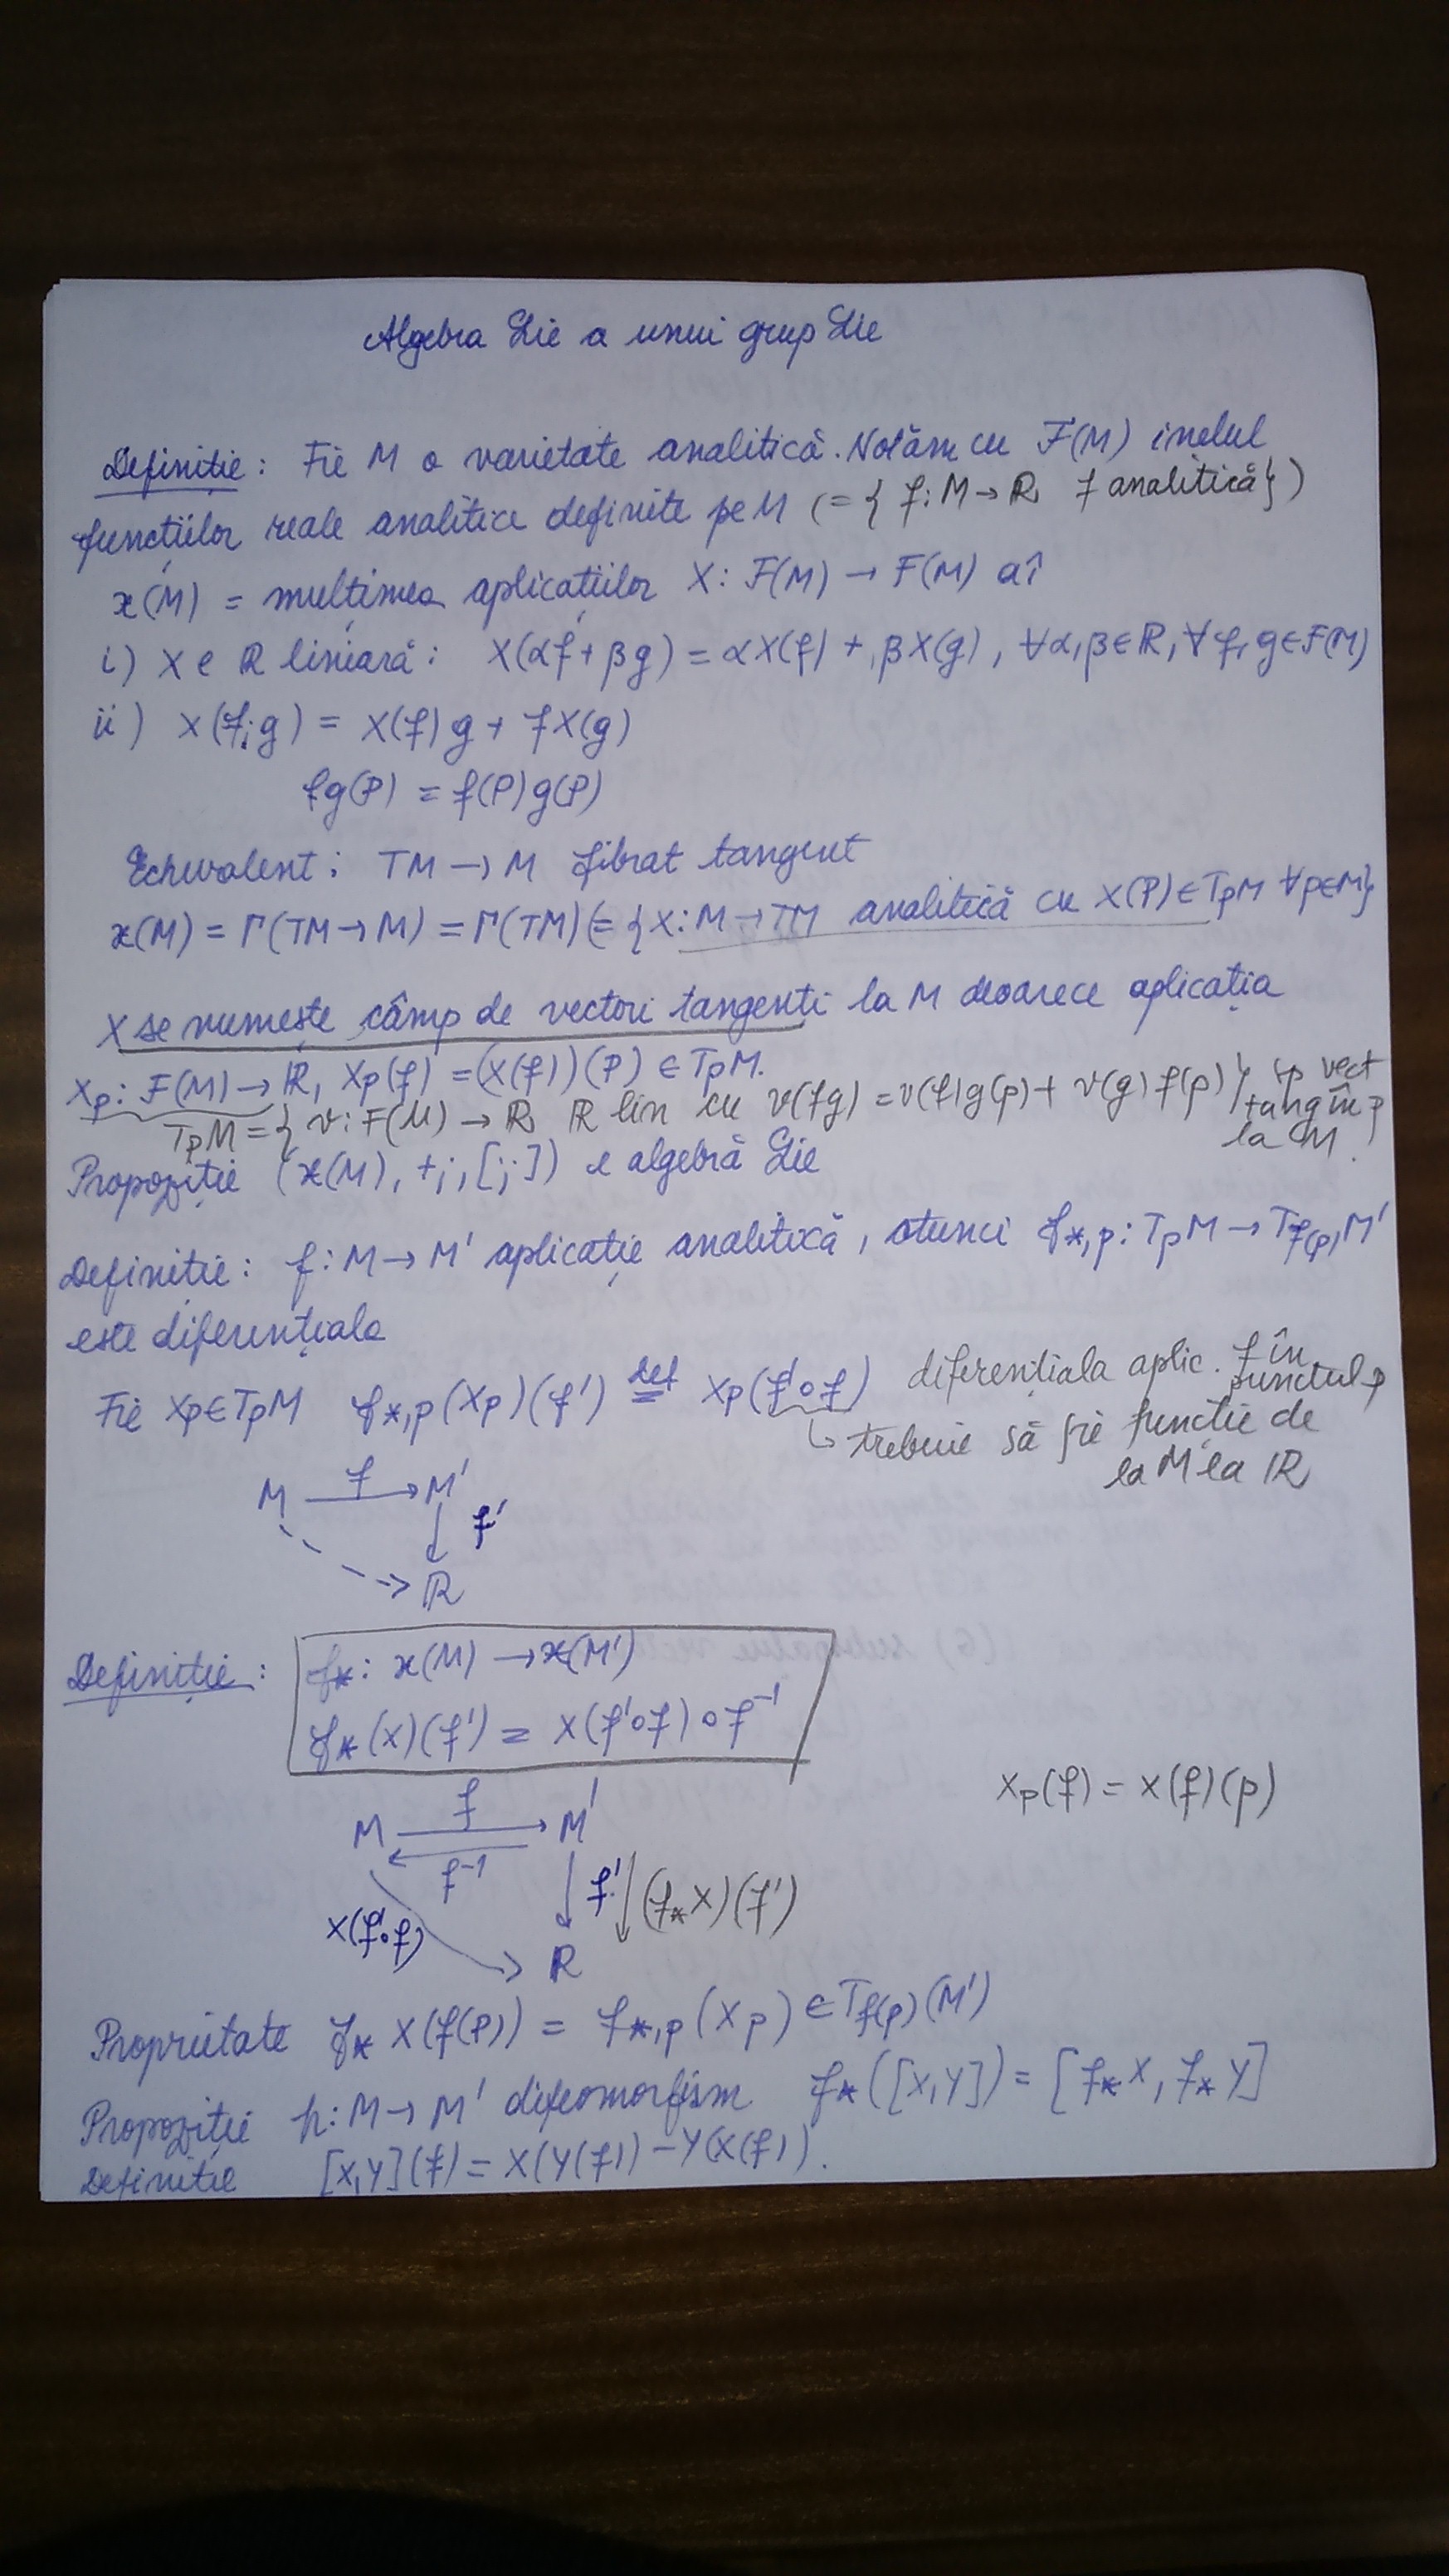 Algebra Lie a unui grup Lie
Definiție: Fie M o varietate analitică. Notăm cu F(M) inelul
funcțiilor reale analitice definite pe M (= { f: M → ℝ, f analitică } )
𝔛(M) = mulțimea aplicațiilor X: F(M) → F(M) aî
i) X e ℝ liniară: X(αf + βg) = αX(f) + βX(g), ∀α,β∈ℝ, ∀f,g∈F(M)
ii) X(f·g) = X(f)g + fX(g)
fg(P) = f(P)g(P)
Echivalent: TM → M fibrat tangent
𝔛(M) = Γ(TM → M) = Γ(TM) (= {X: M → TM analitică cu X(P) ∈ TpM ∀p∈M}
X se numește câmp de vectori tangenți la M deoarece aplicația
Xp: F(M) → ℝ, Xp(f) = (X(f))(P) ∈ TpM.
TpM = { v: F(M) → ℝ, ℝ lin cu v(fg) = v(f)g(p) + v(g)f(p) } sp vect
tang în p
la M
Propoziție (𝔛(M), +, ·, [ , ]) e algebră Lie
Definiție: f: M → M' aplicație analitică, atunci f*,p: TpM → Tf(p)M'
este diferențiala
Fie Xp ∈ TpM f*,p(Xp)(f') def= Xp(f'∘f) diferențiala aplic. f în
punctul p
↳ trebuie să fie funcție de
la M la ℝ
M f→ M'
↓ f'
ℝ
Definiție: f*: 𝔛(M) → 𝔛(M')
f*(X)(f') = X(f'∘f)∘f⁻¹
Xp(f) = X(f)(p)
M f→ M'
f⁻¹
X(f'∘f) ↓ f' ↓ (f*X)(f')
ℝ
Proprietate f* X(f(P)) = f*,p(Xp) ∈ Tf(p)(M')
Propoziție h: M → M' difeomorfism f*([X,Y]) = [f*X, f*Y]
Definiție [X,Y](f) = X(Y(f)) − Y(X(f)).